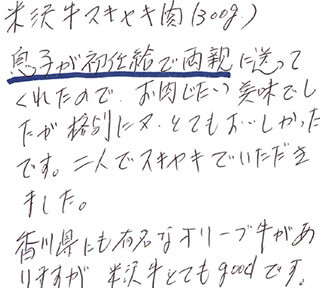 米沢牛スキヤキ肉(300g)
息子が初任給で両親に送って
くれたので、お肉じたい美味でし
たが格別に又、とてもおいしかった
です。二人でスキヤキでいただき
ました。
香川県にも有名なオリーブ牛があ
りますが 米沢牛とてもgoodです。